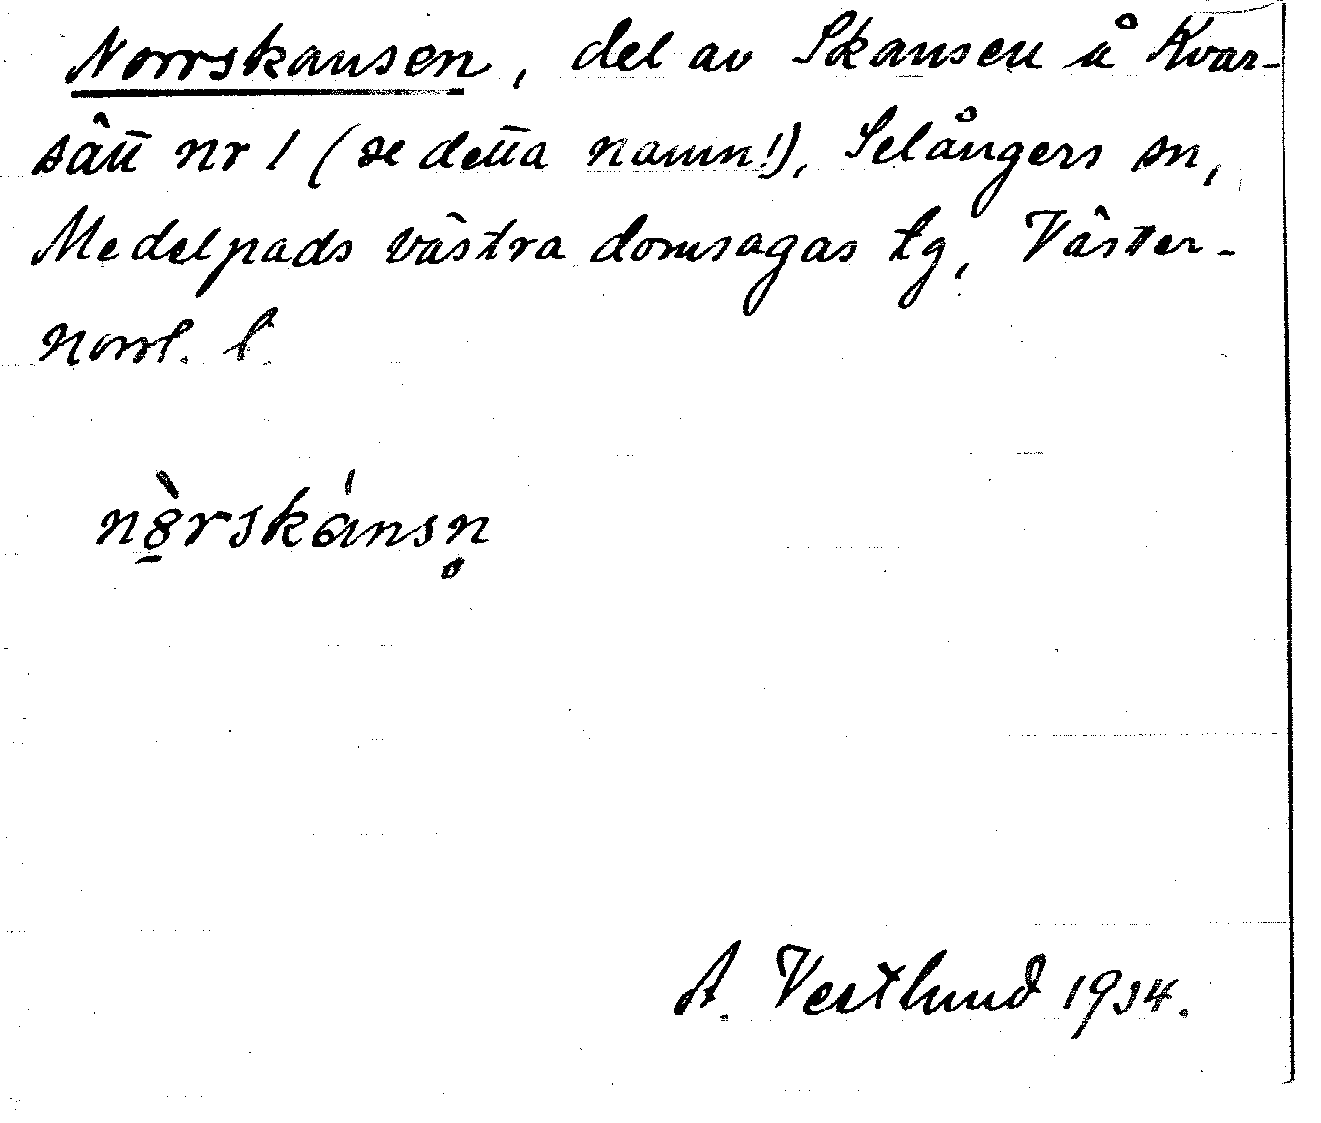 Norrskansen, del av Skansen å Kvar-
sätt nr 1 (se detta namn!), Selångers sn,
Medelpads västra domsagas tg, Väster-
norrl. l.
n8̱̀rskánsn̥
A. Vestlund 1934.